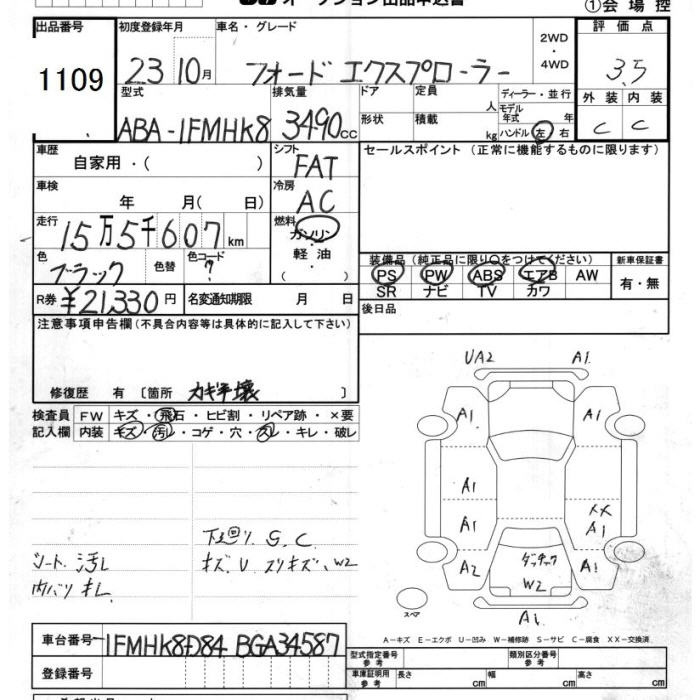 オークション出品申込書
①会場控
出品番号
1109
初度登録年月
23 10月
車名・グレード
フォード エクスプローラー
2WD
・
4WD
評価点
3.5
外装 内装
C C
型式
ABA-1FMHK8
排気量
3490cc
ドア
形状
定員 人
積載 kg
ディーラー・並行
モデル
年式 年
ハンドル 左 右
車歴
自家用・( )
シフト
FAT
セールスポイント (正常に機能するものに限ります)
車検
年 月( 日)
冷房
AC
走行
15万5千607km
燃料
ガソリン
・
軽油
・
( )
色
ブラック
色替
色コード
?
装備品(純正品に限り○をつけてください)
PS PW ABS エアB AW
SR ナビ TV カワ
新車保証書
有・無
R券 ¥21,330円
名変通知期限 月 日
後日品
注意事項申告欄(不具合内容等は具体的に記入して下さい)
修復歴 有 〔箇所 カギ穴壊 〕
検査員
記入欄
FW キズ・飛石・ヒビ割・リペア跡・×要
内装 キズ・汚レ・コゲ・穴・スレ・キレ・破レ
シート 汚レ
内バリ キレ
下廻り S、C
キズ、U スリキズ、W2
UA2 A1
A1 A1
A1
A1
XX
A1
A2
A1
ダッチック
W2
A1
スペア
A-キズ E-エクボ U-凹み W-補修跡 S-サビ C-腐食 XX-交換済
車台番号 1FMHK8D84 BGA34587
登録番号
型式指定番号
参考
類別区分番号
参考
車庫証明用
参考
長さ cm
幅 cm
高さ cm